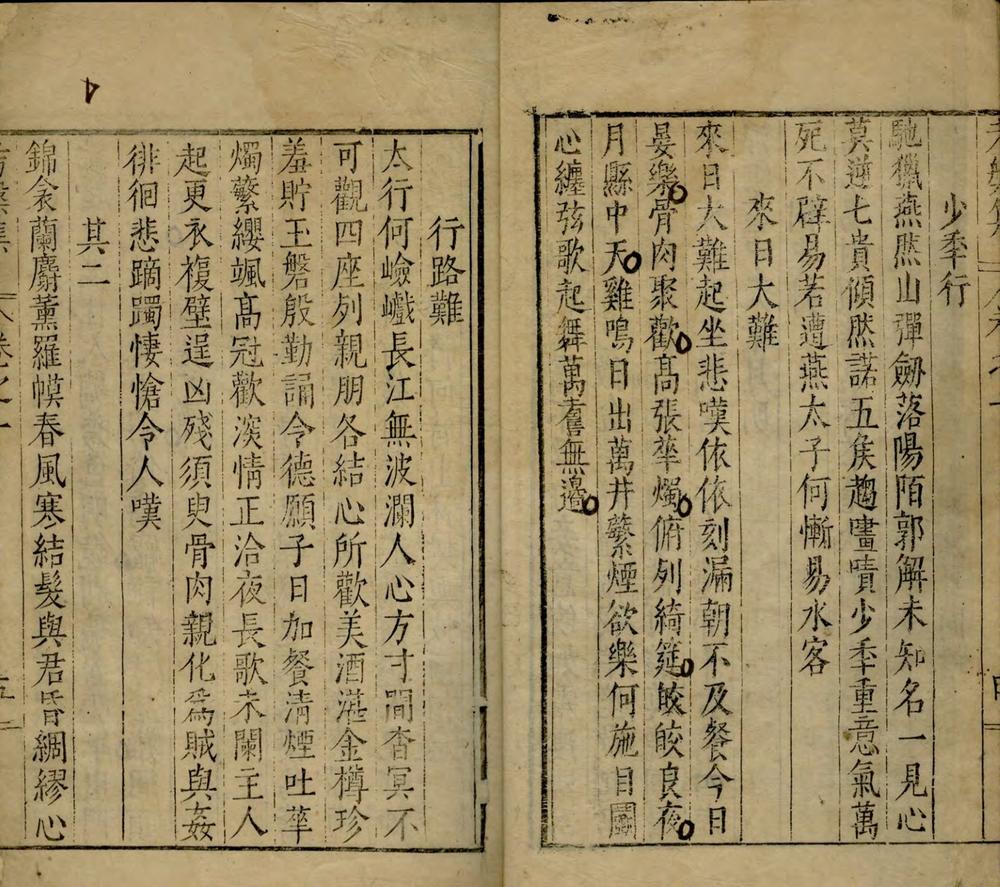 少秊行
馳獵燕肰山彈劒落陽陌郭解未知名一見心
莫逆七貴傾肰諾五矦趨嘖少秊重意氣萬
死不辟易若遭燕太子何慚易水客
來日大難
來日大難起坐悲嘆依依刻漏朝不及餐今日
晏樂骨肉聚歡髙張華燭俯列綺筵皎皎良夜
月縣中天雞鳴日出萬井蘩煙欲樂何施目
心纏弦歌起舞萬舊無邊
行路難
太行何嶮巇長江無波瀾人心方寸間杳冥不
可觀四座列親朋各結心所歡美酒湛金樽珍
羞貯玉磐殷勤誦令德願子日加餐清煙吐華
燭蘩纓颯髙冠歡深情正洽夜長歌未闌主人
起更衣複壁逞凶殘須臾骨肉親化爲賊與姦
徘徊悲蹢躅悽愴令人嘆
其二
錦衾蘭麝薰羅幙春風寒結髮與君昏綢繆心
卷之一
五
四